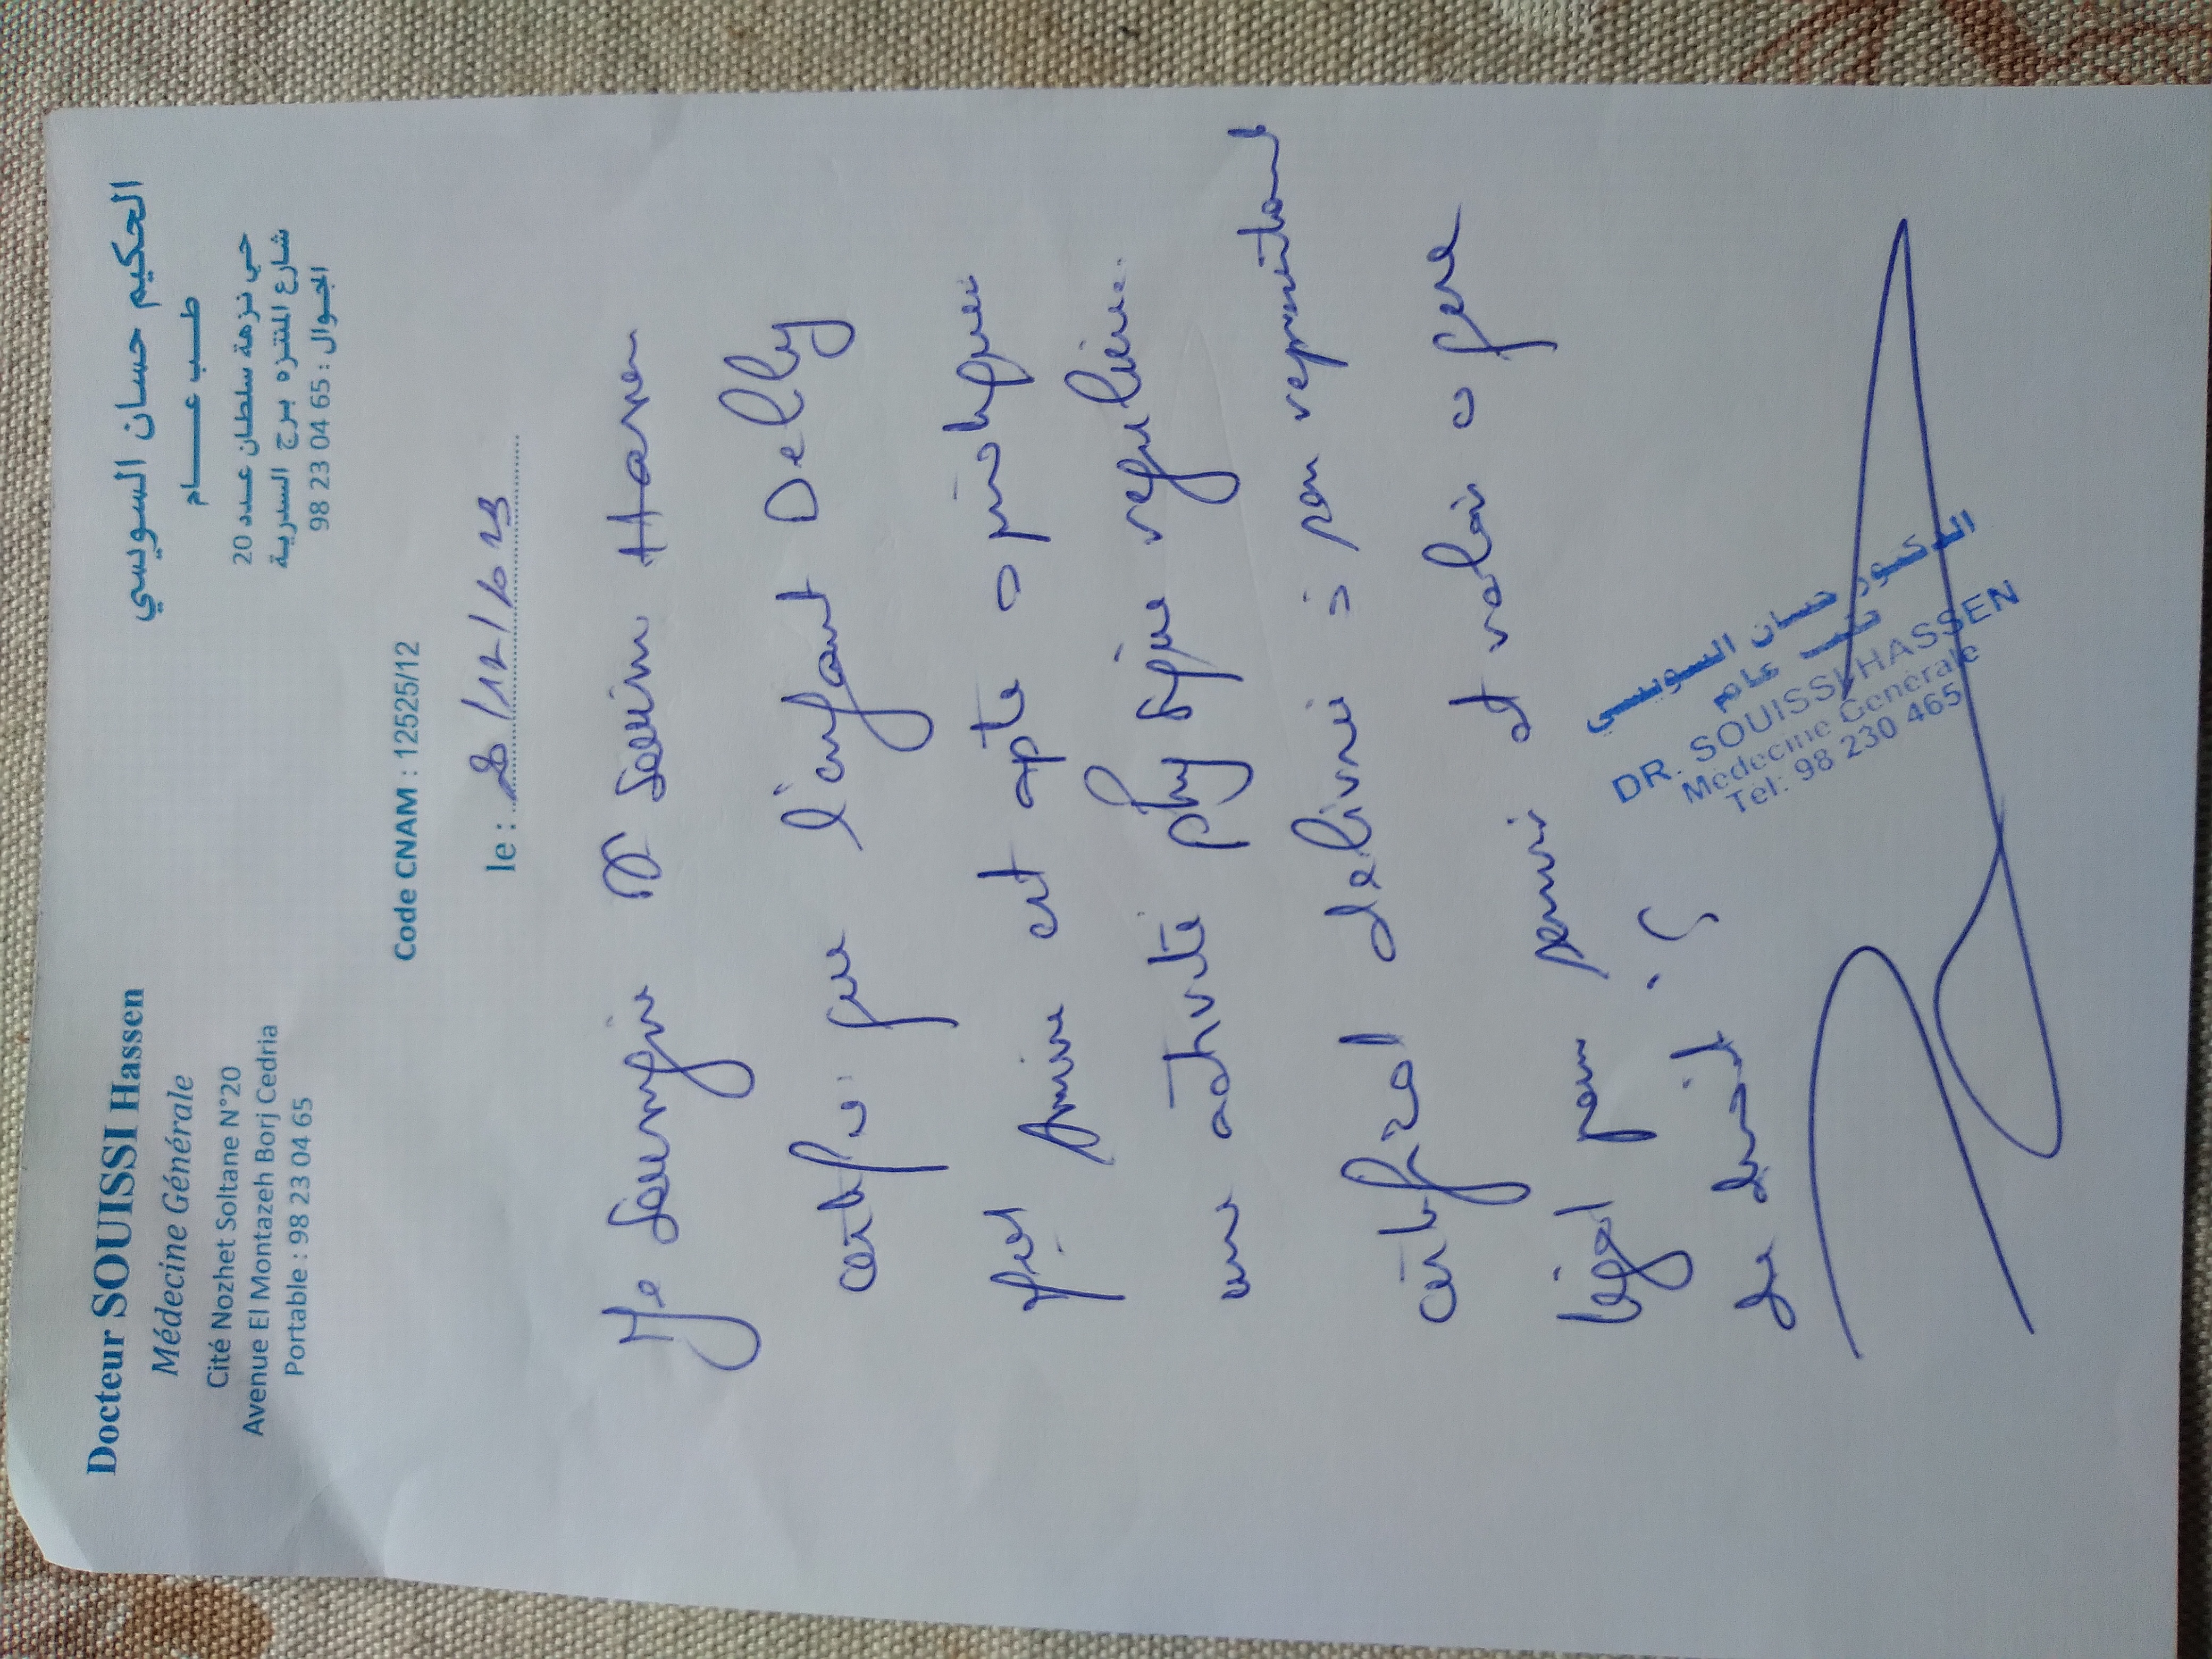 Docteur SOUISSI Hassen
Médecine Générale
Cité Nozhet Soltane N°20
Avenue El Montazeh Borj Cedria
Portable : 98 23 04 65
الحكيم حسان السويسي
طب عام
حي نزهة سلطان عدد 20
شارع المنتزه برج السدرية
الجوال : 98 23 04 65
Code CNAM : 12525/12
le : 28/12/2023
Je soussigné Dr Souissi Hassen
certifie que l'enfant Delly
Amine est apte a pratiquer
une activité physique régulière.
certificat délivré à son représentant
légal pour servir et valoir a que
de droit
الدكتور حسان السويسي
طب عام
DR. SOUISSI HASSEN
Médecine Générale
Tel: 98 230 465